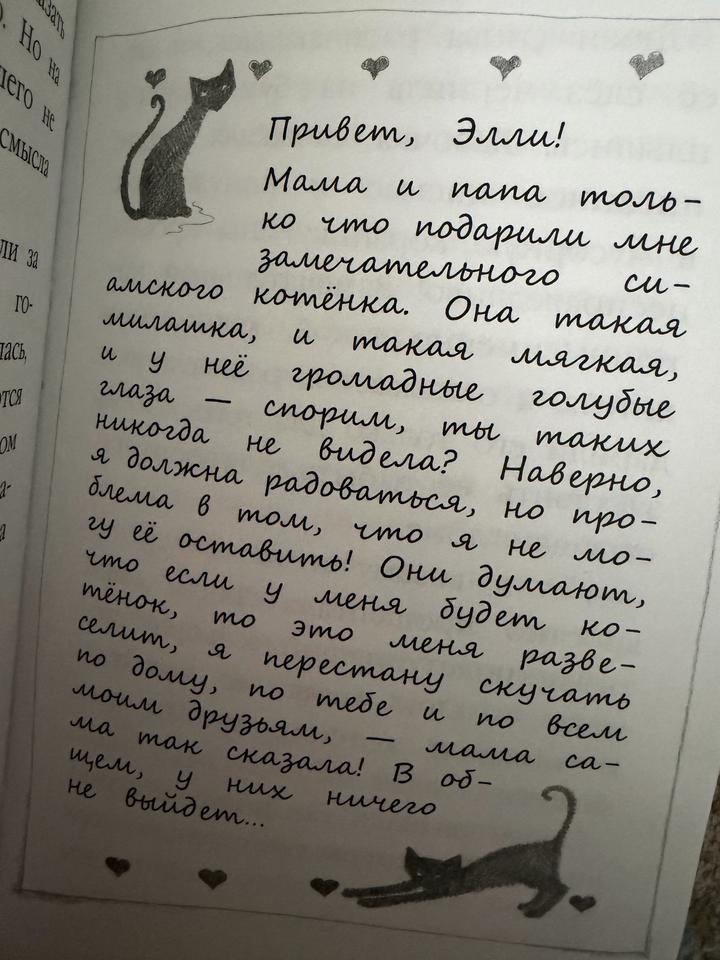 казать
о. Но на
него не
смысла
ли за
го-
лась,
ом
Привет, Элли!
Мама и папа толь-
ко что подарили мне
замечательного си-
амского котёнка. Она такая
милашка, и такая мягкая,
и у неё громадные голубые
глаза — спорим, ты таких
никогда не видела? Наверно,
я должна радоваться, но про-
блема в том, что я не мо-
гу её оставить! Они думают,
что если у меня будет ко-
тёнок, то это меня разве-
селит, я перестану скучать
по дому, по тебе и по всем
моим друзьям, — мама са-
ма так сказала! В об-
щем, у них ничего
не выйдет...